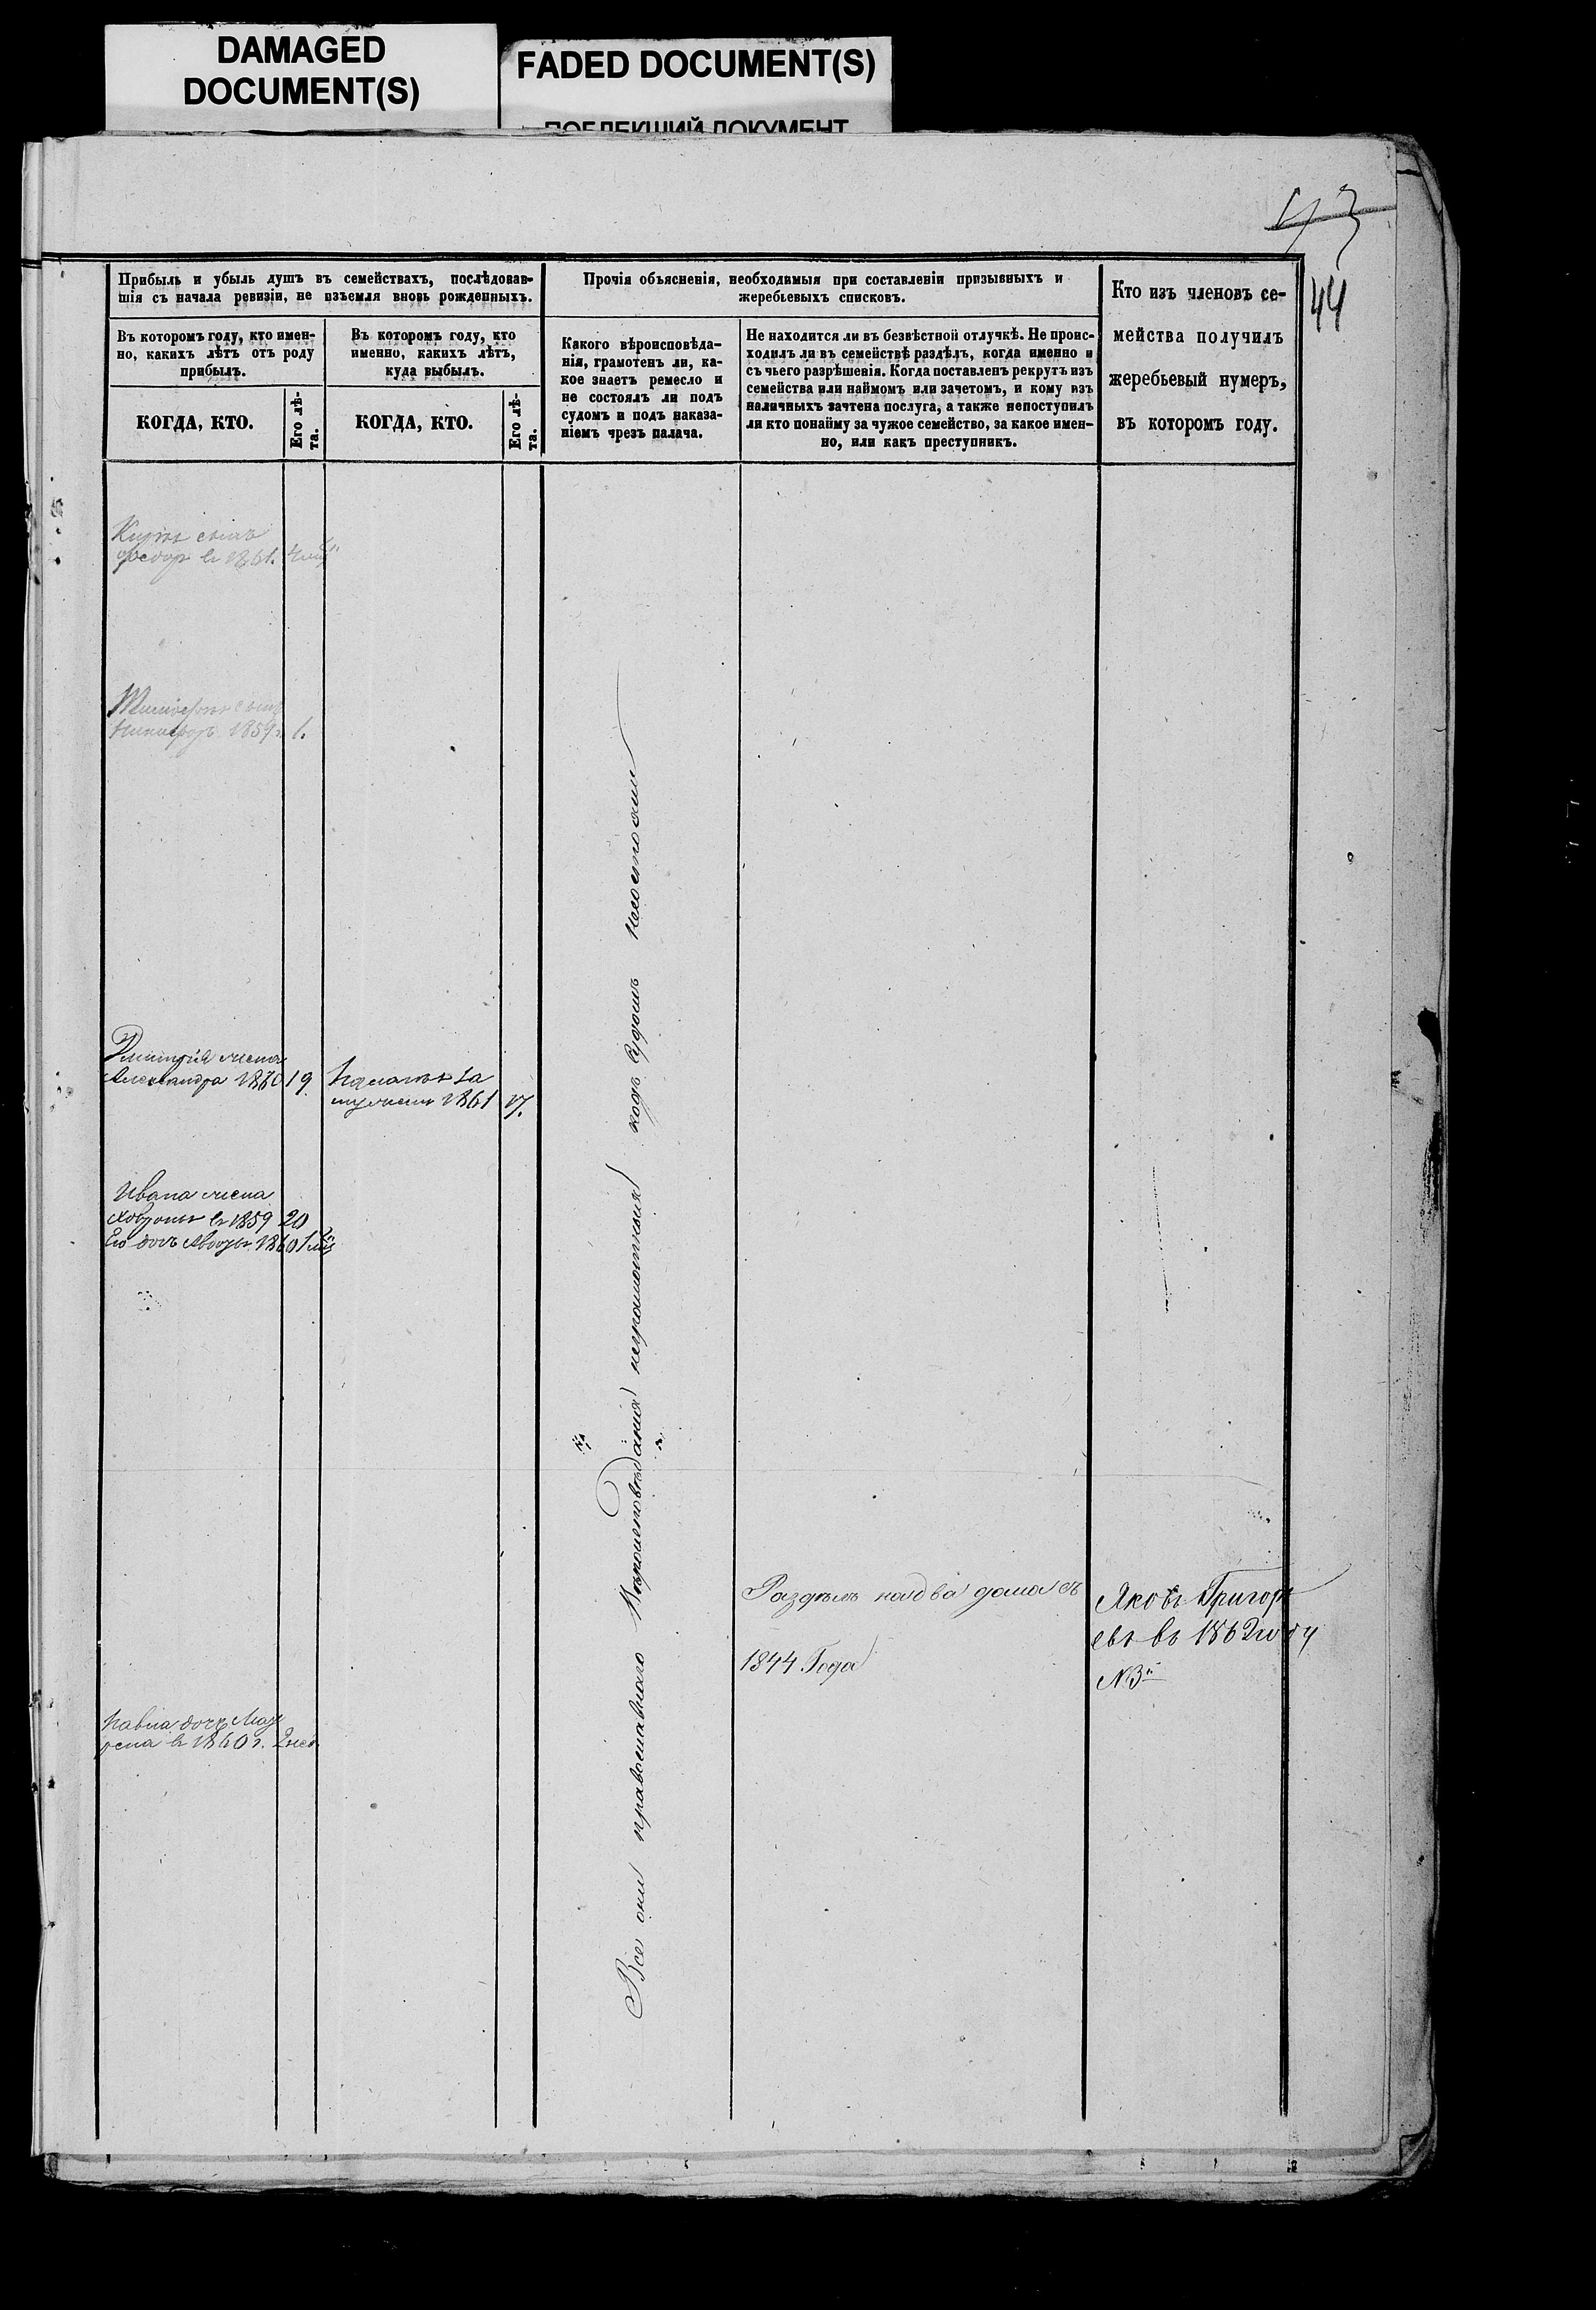 DAMAGED
DOCUMENT(S)
FADED DOCUMENT(S)
ПОБЛЕКШИЙ ДОКУМЕНТ
43
44
Прибыль и убыль душъ въ семействахъ, послѣдовав-
шія съ начала ревизіи, не изъемля вновь рожденныхъ.
Въ которомъ году, кто имен-
но, какихъ лѣтъ отъ роду
прибылъ.
КОГДА, КТО.
Его лѣ-
та.
Въ которомъ году, кто
именно, какихъ лѣтъ,
куда выбылъ.
КОГДА, КТО.
Его лѣ-
та.
Прочія объясненія, необходимыя при составленіи призывныхъ и
жеребьевыхъ списковъ.
Какого вѣроисповѣда-
нія, грамотенъ ли, ка-
кое знаетъ ремесло и
не состоялъ ли подъ
судомъ и подъ наказа-
ніемъ чрезъ палача.
Не находится ли въ безвѣстной отлучкѣ. Не проис-
ходилъ ли въ семействѣ раздѣлъ, когда именно и
съ чьего разрѣшенія. Когда поставленъ рекрутъ изъ
семейства или наймомъ или зачетомъ, и кому изъ
наличныхъ зачтена послуга, а также непоступилъ
ли кто понайму за чужое семейство, за какое имен-
но, или какъ преступникъ.
Кто изъ членовъ се-
мейства получилъ
жеребьевый нумеръ,
въ которомъ году.
сынъ
Федоръ въ 1861.
сынъ
Никифоръ 1859 г. 1.
Дмитрія жена
Александра 1860 19
за
мужемъ 1861 17.
Ивана жена
въ 1859 20
Его дочь 1860
Все они православнаго Вѣроисповѣданія неграмотныя подъ Судомъ несостояли
Раздѣлъ на два дома съ
1844 Года
Яковъ Григорь
евъ въ 1862 году
№ 3й
Павла дочь Мат
рена въ 1860 г. 2 нед.